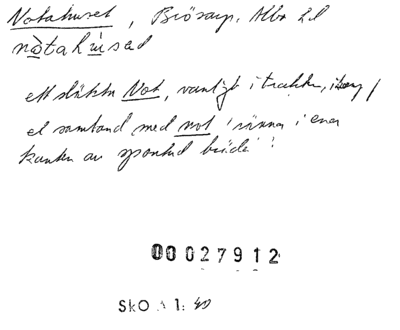 Notahuset, Biösarp. Albo hd
nòtahúsad
ett släkten Not, vanligt i trakten,
el samband med not 'ränna i ena
kanten av spontad bräda'!
00027912
SkO A 1: